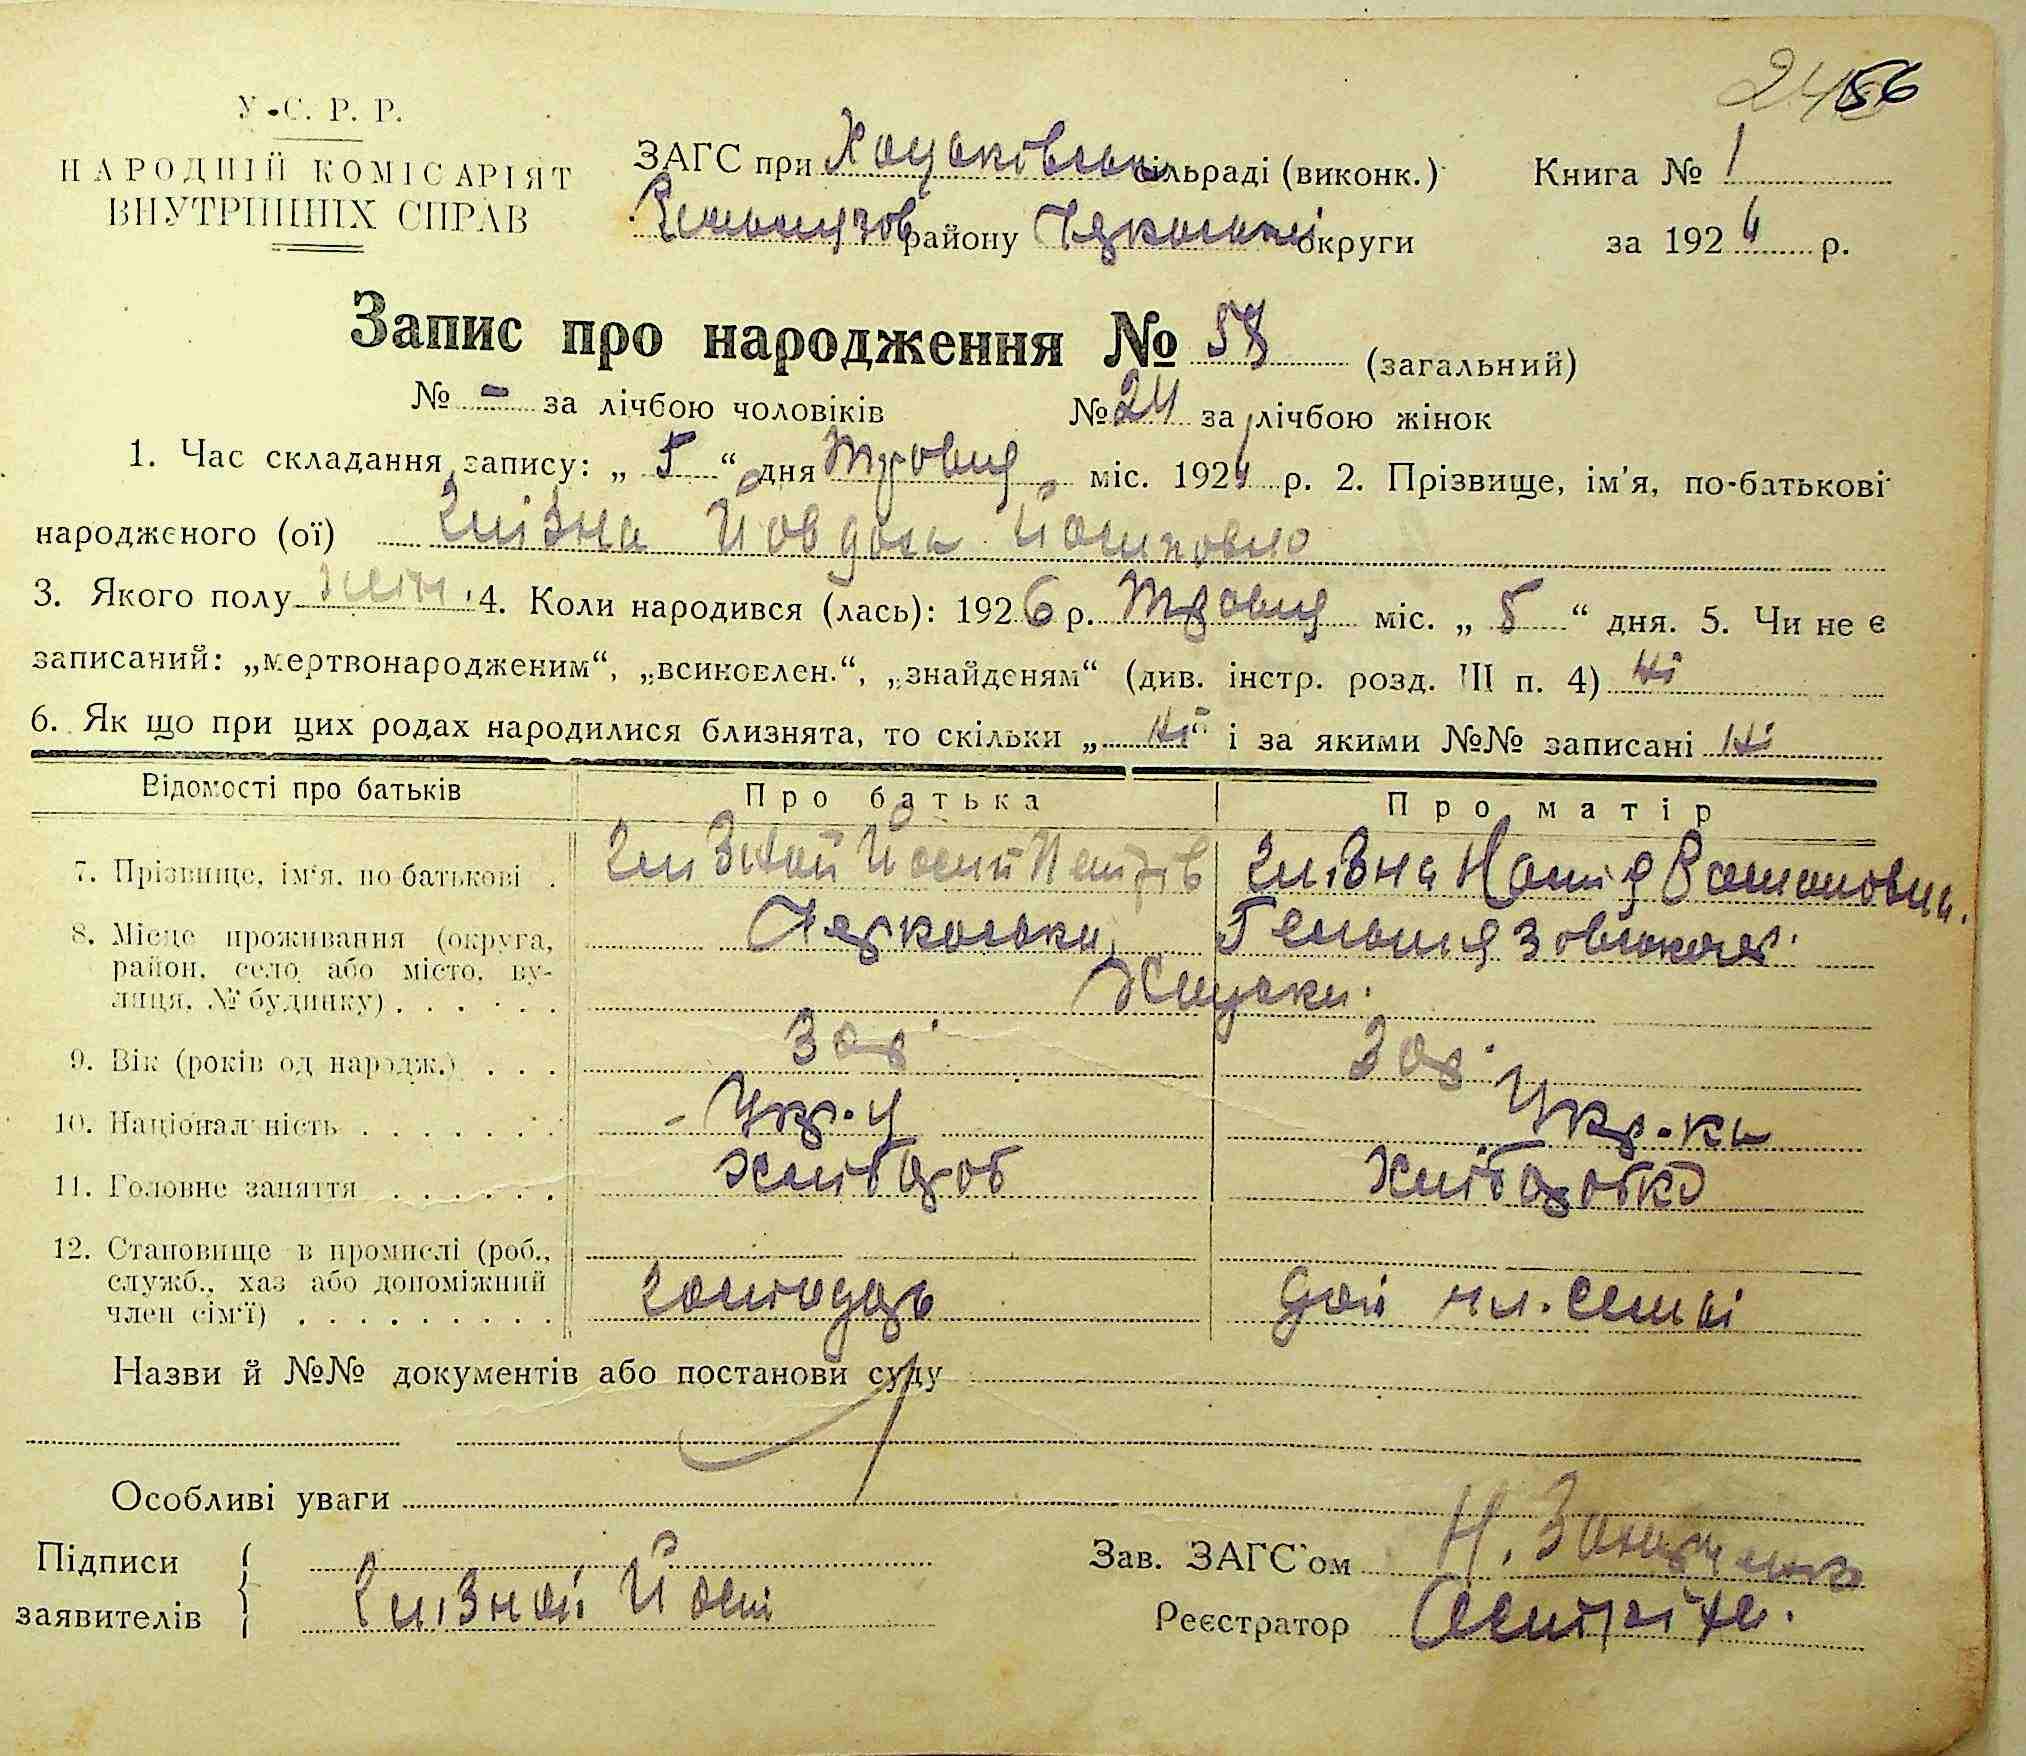 2456
У.С.Р.Р.
НАРОДНІЙ КОМІСАРІЯТ
ВНУТРІШНІХ СПРАВ
ЗАГС при Хацьківськ сільраді (виконк.)
району Черкаської округи
Книга № 1
за 1926 р.
Запис про народження № 58 (загальний)
№ - за лічбою чоловіків № 24 за лічбою жінок
1. Час складання запису: „ 5 “ дня Травня міс. 1926 р. 2. Прізвище, ім'я, по-батькові
народженого (ої) Глізна Йовдоха Йосиповна
3. Якого полу жін. 4. Коли народився (лась): 1926 р. Травня міс. „ 5 “ дня. 5. Чи не є
записаний: „мертвонародженим“, „всиновлен.“, „знайденям“ (див. інстр. розд. III п. 4) ні
6. Як що при цих родах народилися близнята, то скільки „ ні “ і за якими №№ записані ні
Відомості про батьків Про батька Про матір
7. Прізвище, ім'я, по-батькові . Йосип Петрів Глізна
8. Місце проживання (округа, Черкаськи,
район, село або місто, ву-
лиця, № будинку) . . . . . .
9. Вік (років од народж.) . . . 30р. 30р.
10. Національність . . . . . . . Укр-ц Укр-ка
11. Головне заняття . . . . . . хлібороб хліборобка
12. Становище в промислі (роб.,
служб., хаз або допоміжний
член сім'ї) . . . . . . . . . господарь доп чл. семьі
Назви й №№ документів або постанови суду
Особливі уваги
Підписи
заявителів Йосип
Зав. ЗАГС'ом
Реєстратор